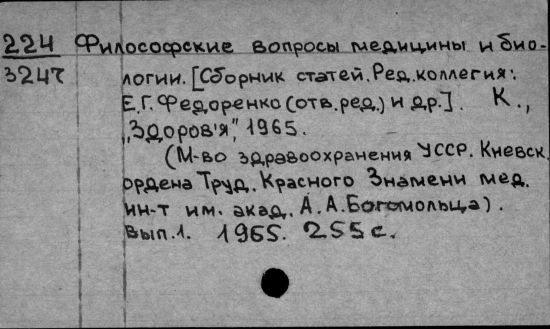 224 Философские вопросы медицины и био-
3247 логии. [Сборник статей. Ред. коллегия:
Е.Г. Федоренко (отв. ред.) и др.]. К.,
„Здоров'я", 1965.
(М-во здравоохранения УССР. Киевск.
ордена Труд. Красного Знамени мед.
ин-т им. акад. А.А. Богомольца).
Вып. 1. 1965. 255 с.